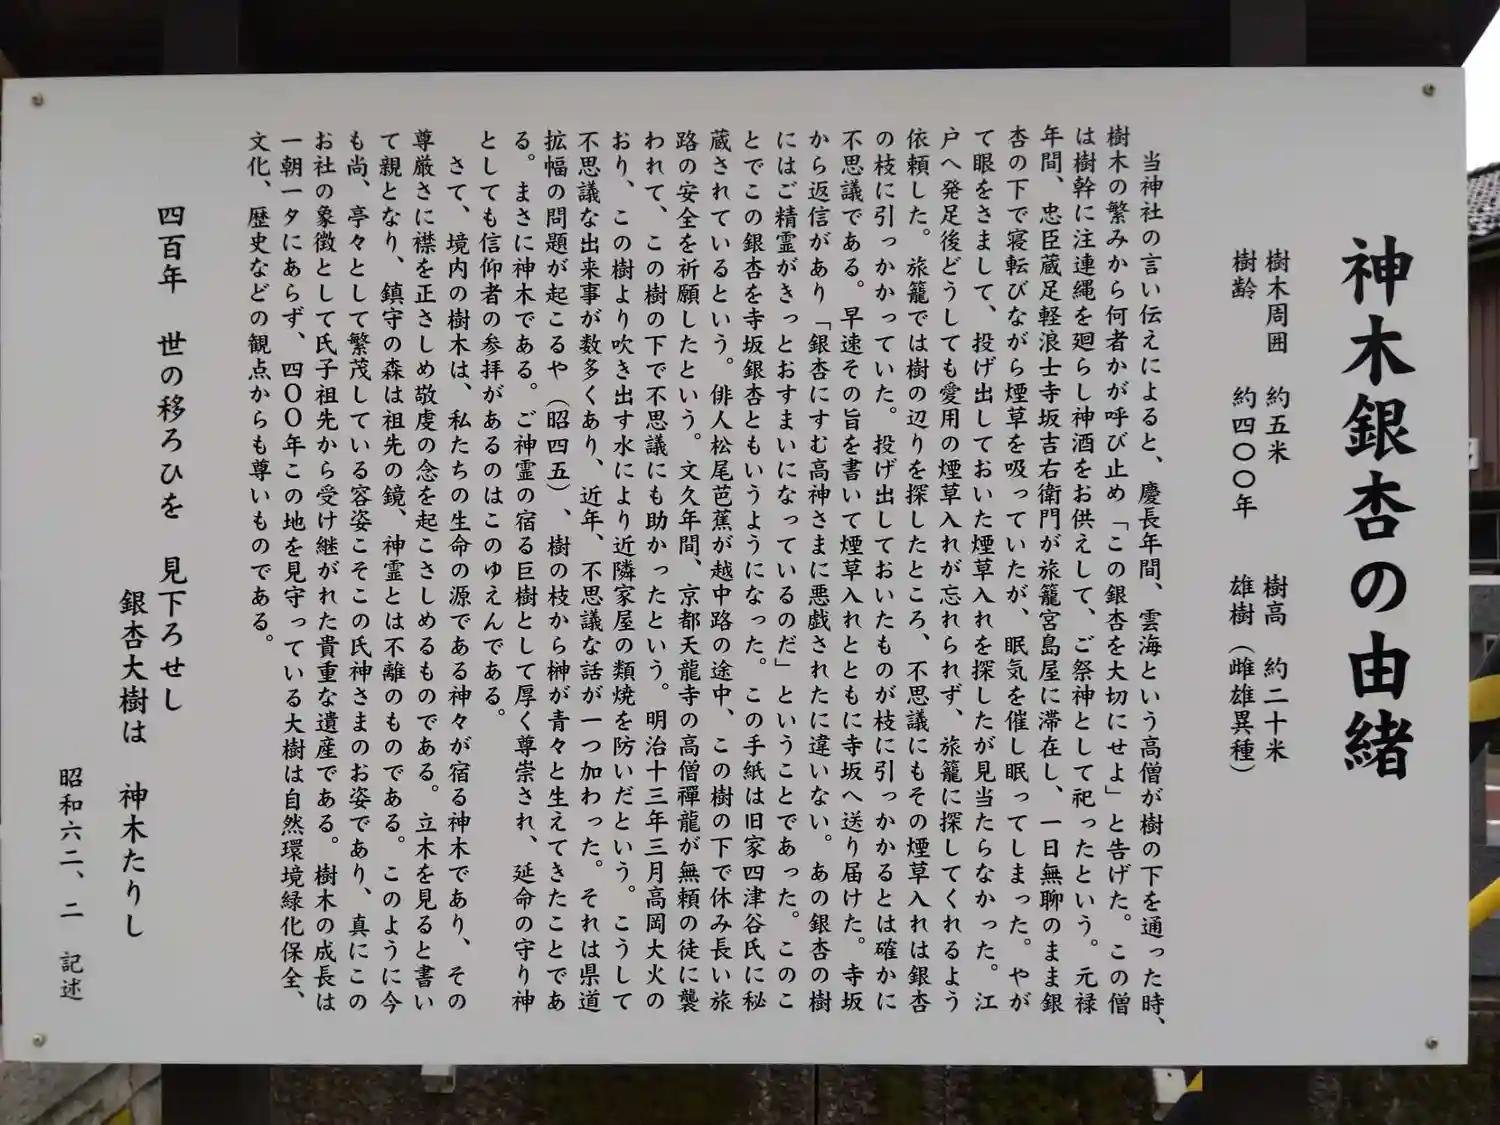 神木銀杏の由緒
樹木周囲　約五米　樹高　約二十米
樹齢　約四〇〇年　雄樹（雌雄異種）
当神社の言い伝えによると、慶長年間、雲海という高僧が樹の下を通った時、
樹木の繁みから何者かが呼び止め「この銀杏を大切にせよ」と告げた。この僧
は樹幹に注連縄を廻らし神酒をお供えして、ご祭神として祀ったという。元禄
年間、忠臣蔵足軽浪士寺坂吉右衛門が旅籠宮島屋に滞在し、一日無聊のまま銀
杏の下で寝転びながら煙草を吸っていたが、眠気を催し眠ってしまった。やが
て眼をさまして、投げ出しておいた煙草入れを探したが見当たらなかった。江
戸へ発足後どうしても愛用の煙草入れが忘れられず、旅籠に探してくれるよう
依頼した。旅籠では樹の辺りを探したところ、不思議にもその煙草入れは銀杏
の枝に引っかかっていた。投げ出しておいたものが枝に引っかかるとは確かに
不思議である。早速その旨を書いて煙草入れとともに寺坂へ送り届けた。寺坂
から返信があり「銀杏にすむ高神さまに悪戯されたに違いない。あの銀杏の樹
にはご精霊がきっとおすまいになっているのだ」ということであった。このこ
とでこの銀杏を寺坂銀杏ともいうようになった。この手紙は旧家四津谷氏に秘
蔵されているという。俳人松尾芭蕉が越中路の途中、この樹の下で休み長い旅
路の安全を祈願したという。文久年間、京都天龍寺の高僧禪龍が無頼の徒に襲
われて、この樹の下で不思議にも助かったという。明治十三年三月高岡大火の
おり、この樹より吹き出す水により近隣家屋の類焼を防いだという。こうして
不思議な出来事が数多くあり、近年、不思議な話が一つ加わった。それは県道
拡幅の問題が起こるや（昭四五）、樹の枝から榊が青々と生えてきたことであ
る。まさに神木である。ご神霊の宿る巨樹として厚く尊崇され、延命の守り神
としても信仰者の参拝があるのはこのゆえんである。
さて、境内の樹木は、私たちの生命の源である神々が宿る神木であり、その
尊厳さに襟を正さしめ敬虔の念を起こさしめるものである。立木を見ると書い
て親となり、鎮守の森は祖先の鏡、神霊とは不離のものである。このように今
も尚、亭々として繁茂している容姿こそこの氏神さまのお姿であり、真にこの
お社の象徴として氏子祖先から受け継がれた貴重な遺産である。樹木の成長は
一朝一夕にあらず、四〇〇年この地を見守っている大樹は自然環境緑化保全、
文化、歴史などの観点からも尊いものである。
四百年　世の移ろひを　見下ろせし
銀杏大樹は　神木たりし
昭和六二、二　記述